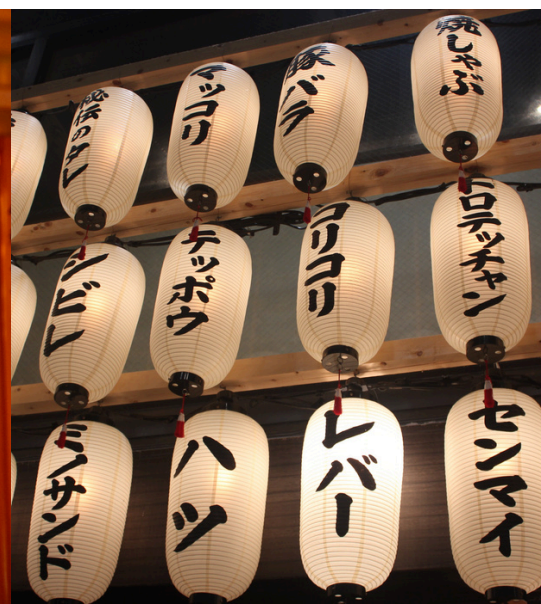 秘伝のタレ
マッコリ
豚バラ
焼しゃぶ
シビレ
テッポウ
コリコリ
トロテッチャン
ミノサンド
ハツ
レバー
センマイ